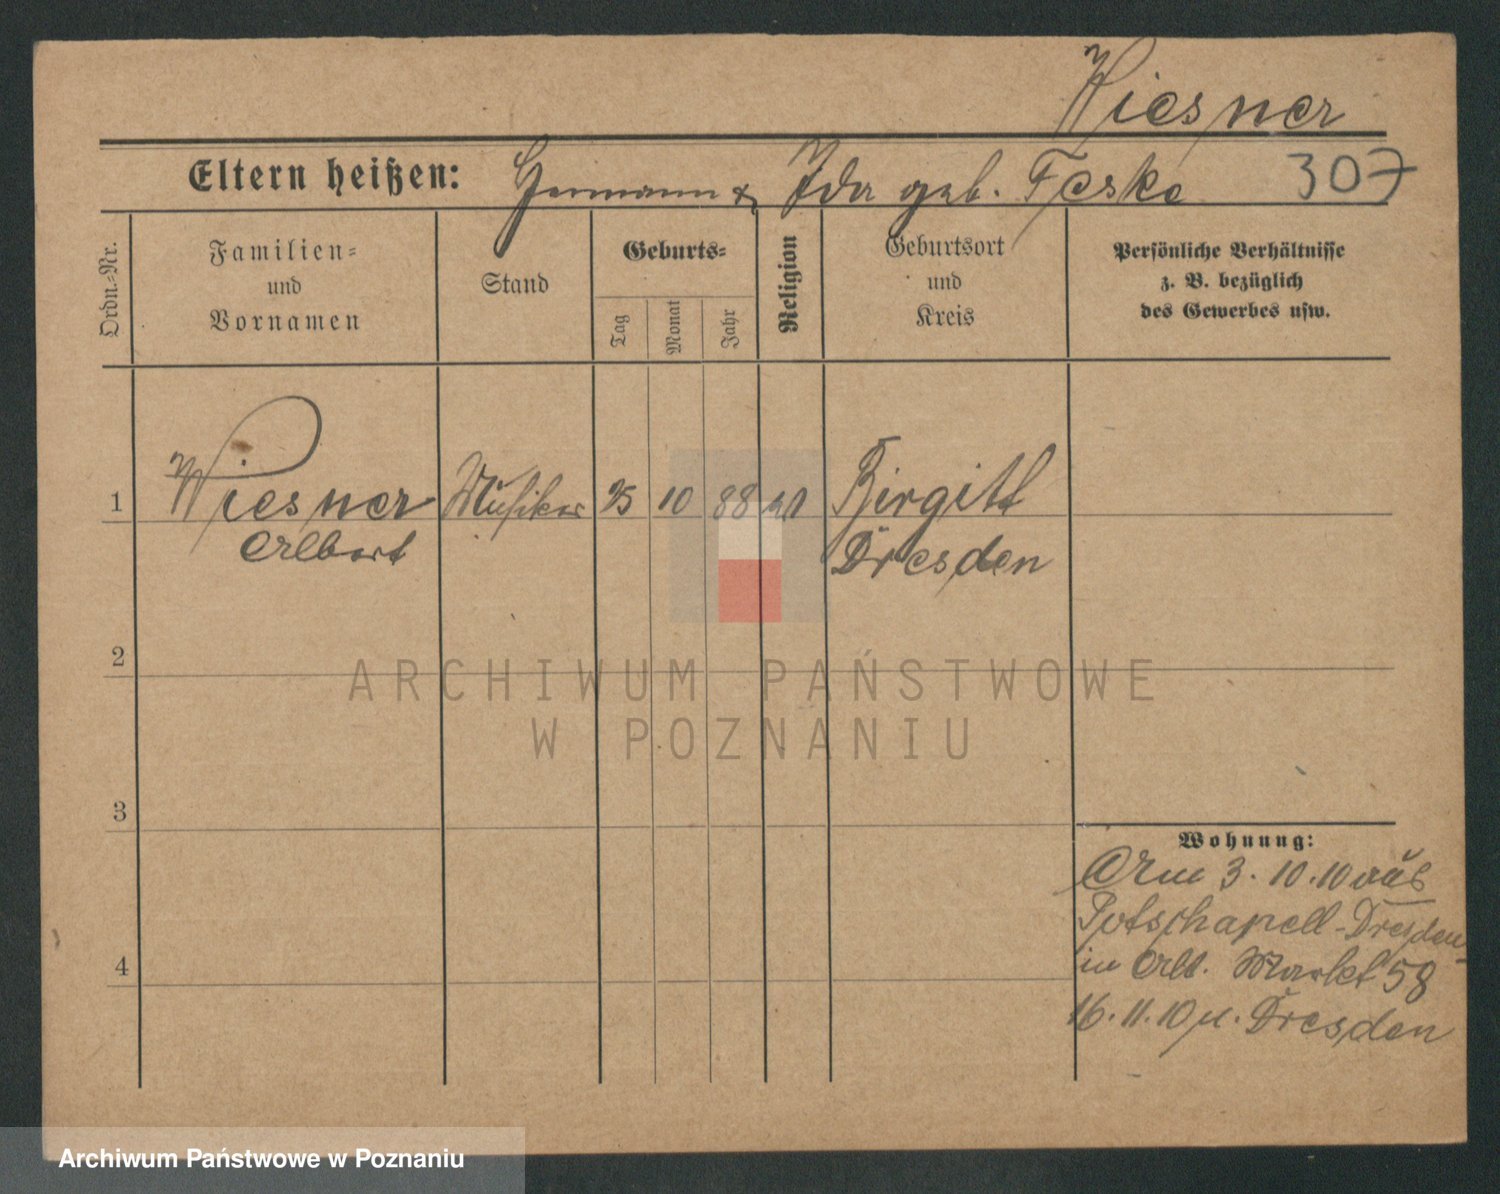 Wiesner
Eltern heißen: Hermann & Ida geb. Feske 307
Ordn.-Nr.
Familien-
und
Vornamen
Stand
Geburts-
Tag
Monat
Jahr
Religion
Geburtsort
und
Kreis
Persönliche Verhältnisse
z. B. bezüglich
des Gewerbes usw.
1 Wiesner Musiker 25 10 88 Birgitt
Albert Dresden
2
3
4
Wohnung:
Am 3.10.10 aus
Potschapell-Dresden
in Alt. Markt 58
16.11.10 n. Dresden
ARCHIWUM PAŃSTWOWE
W POZNANIU
Archiwum Państwowe w Poznaniu